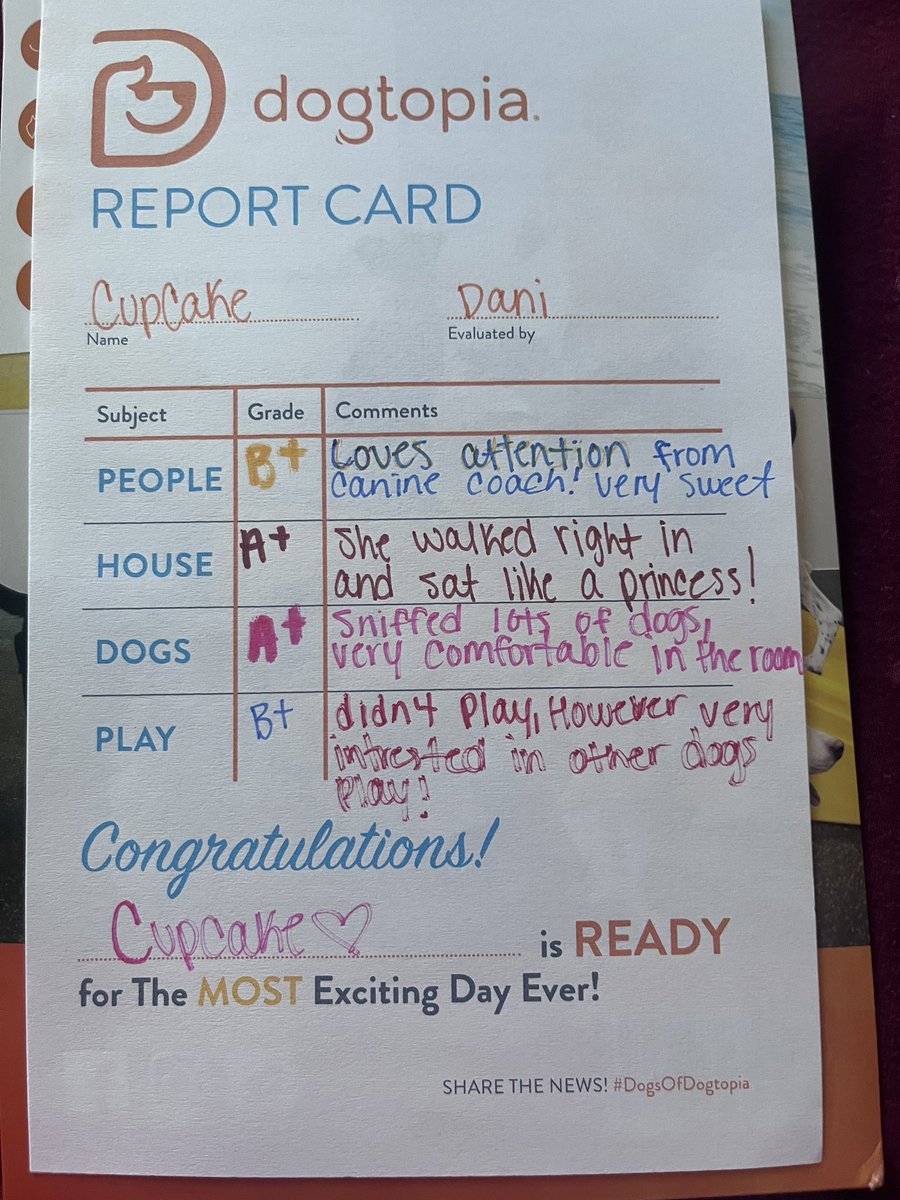 dogtopia.
REPORT CARD
Cupcake Dani
Name Evaluated by
Subject Grade Comments
PEOPLE B+ Loves attention from
canine coach! very sweet
HOUSE A+ She walked right in
and sat like a princess!
DOGS A+ Sniffed lots of dogs,
very comfortable in the room
PLAY B+ didn4 Play, However very
intrested in other dogs
Play!
Congratulations!
Cupcake♡ is READY
for The MOST Exciting Day Ever!
SHARE THE NEWS! #DogsOfDogtopia